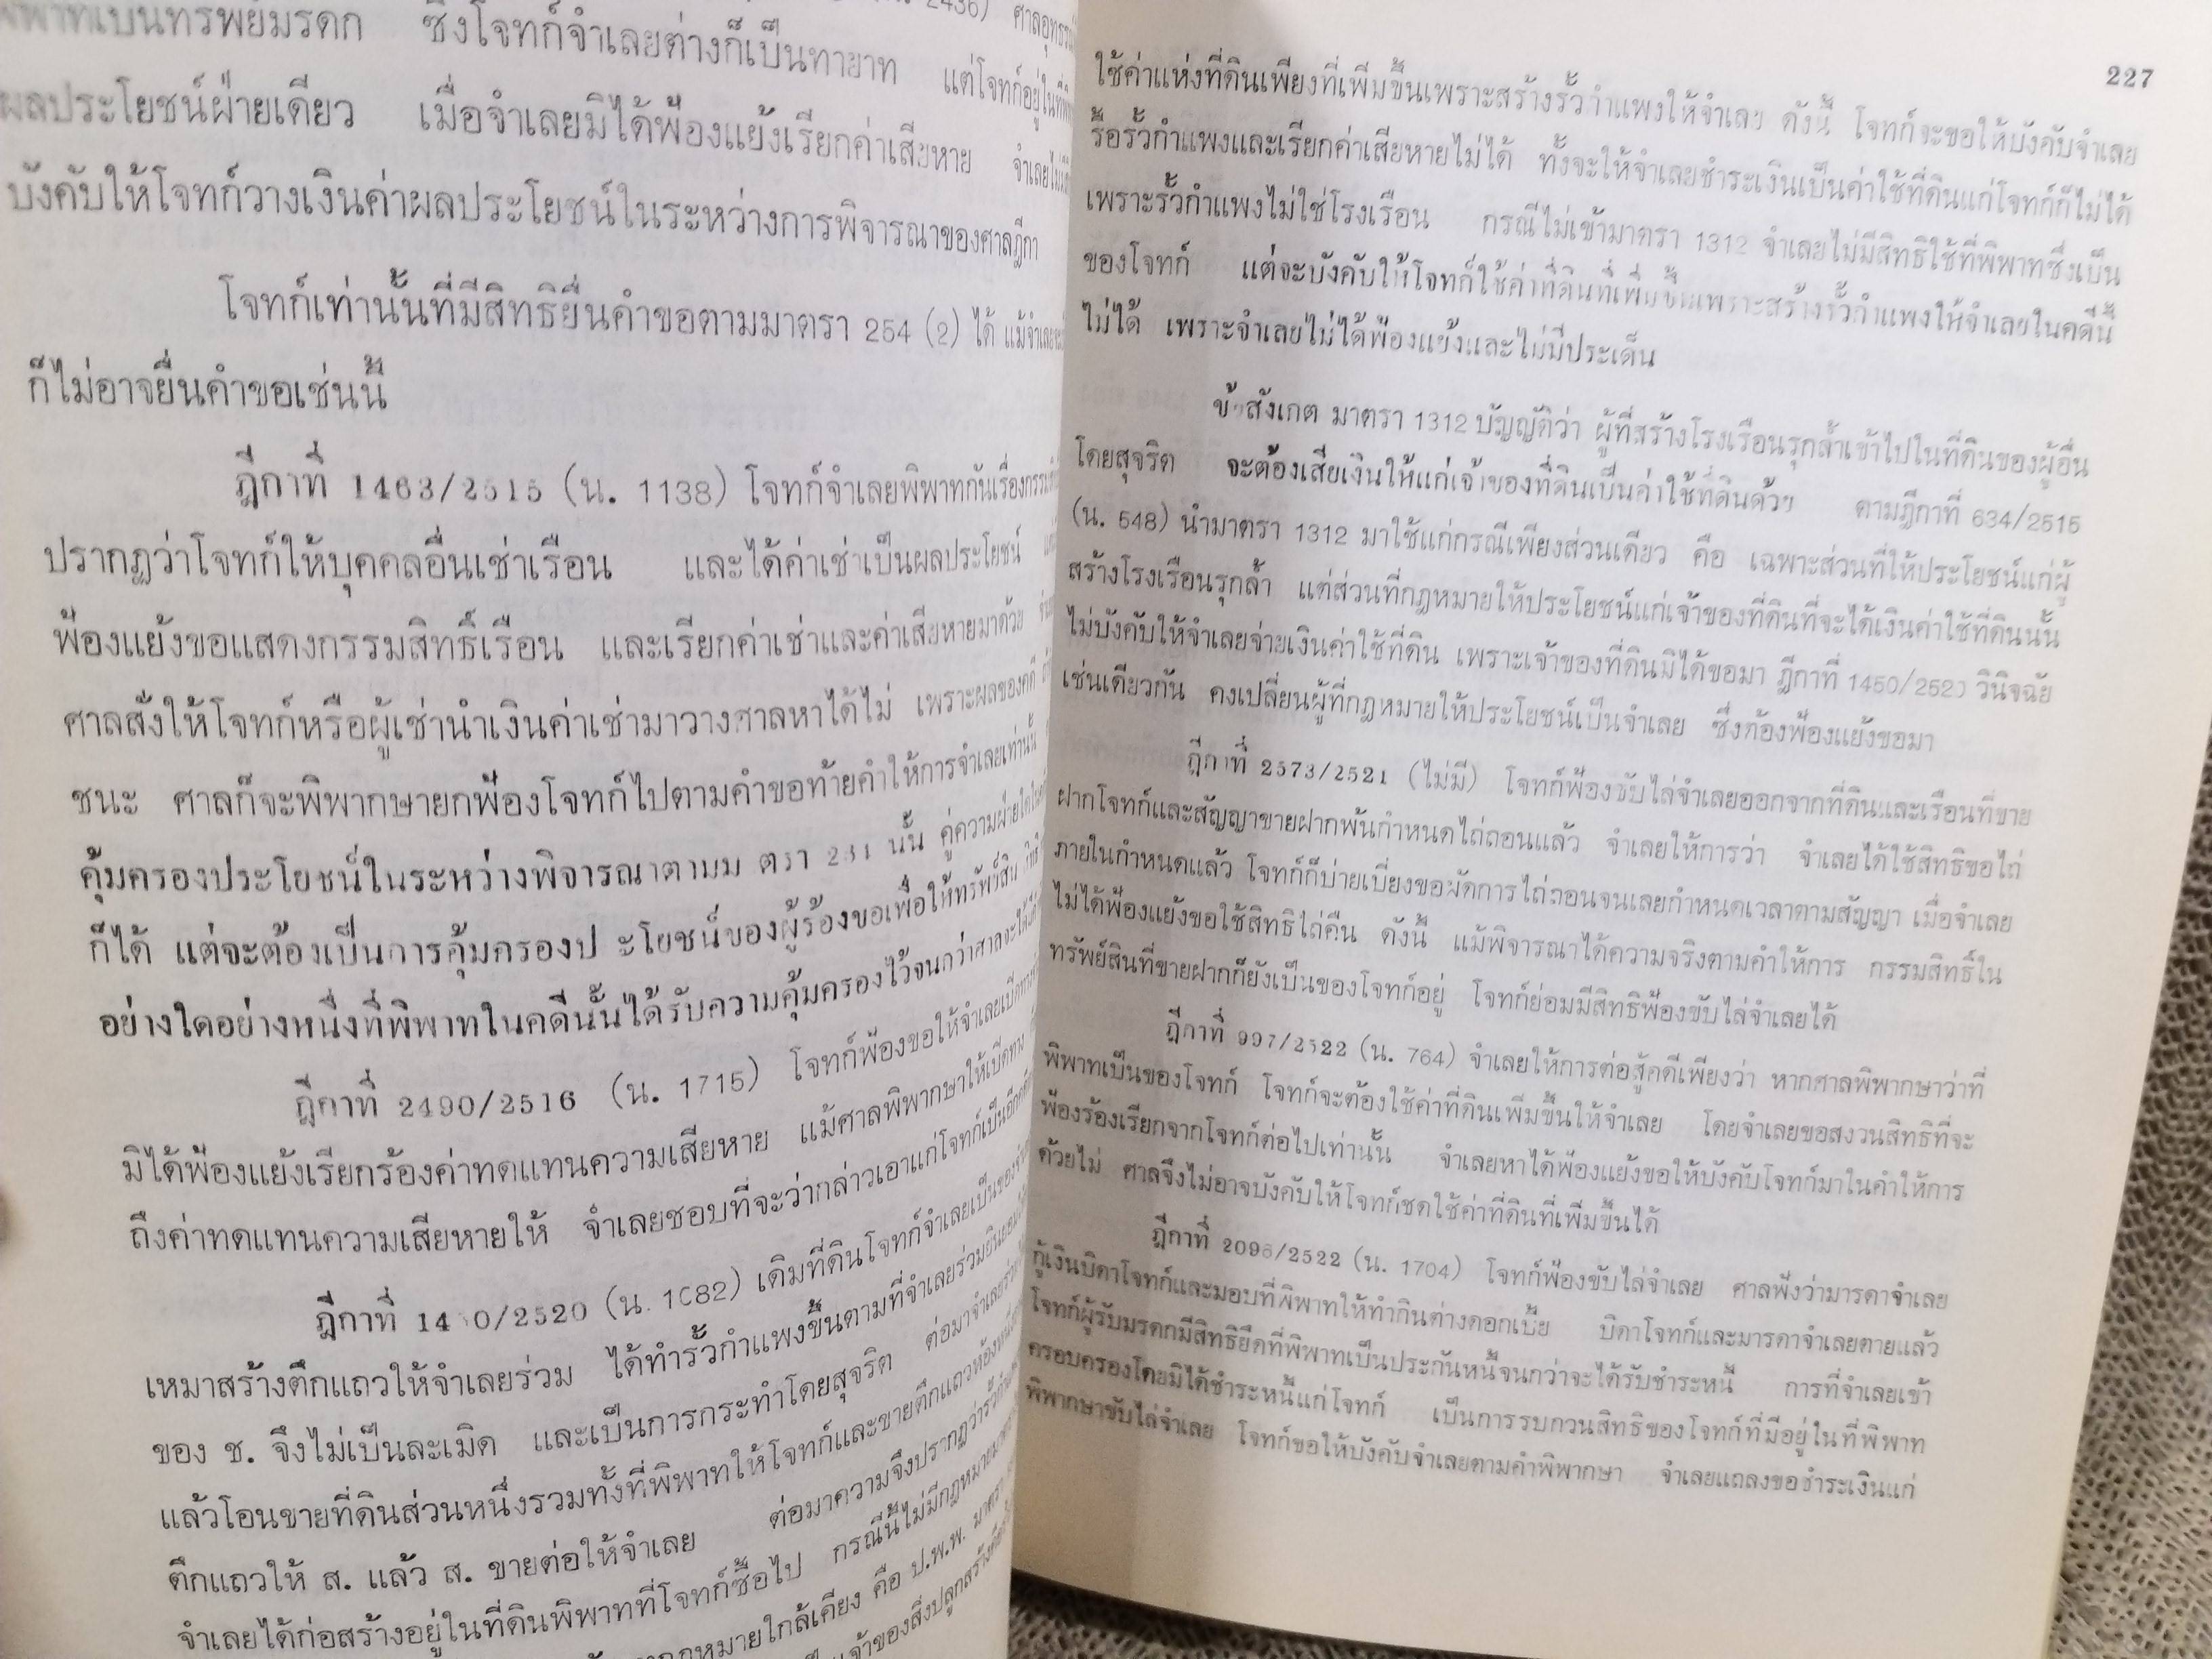 พิพาทเป็นทรัพย์มรดก ซึ่งโจทก์จำเลยต่างก็เป็นทายาท แต่โจทก์อยู่ในที่
ผลประโยชน์ฝ่ายเดียว เมื่อจำเลยมิได้ฟ้องแย้งเรียกค่าเสียหาย
บังคับให้โจทก์วางเงินค่าผลประโยชน์ในระหว่างการพิจารณาของศาลฎีกา
โจทก์เท่านั้นที่มีสิทธิยื่นคำขอตามมาตรา 254 (2) ได้
ก็ไม่อาจยื่นคำขอเช่นนี้
ฎีกาที่ 1463/2515 (น. 1138) โจทก์จำเลยพิพาทกันเรื่อง
ปรากฏว่าโจทก์ให้บุคคลอื่นเช่าเรือน และได้ค่าเช่าเป็นผลประโยชน์
ฟ้องแย้งขอแสดงกรรมสิทธิ์เรือน และเรียกค่าเช่าและค่าเสียหายมาด้วย
ศาลสั่งให้โจทก์หรือผู้เช่านำเงินค่าเช่ามาวางศาลหาได้ไม่ เพราะผลของคดี
ชนะ ศาลก็จะพิพากษายกฟ้องโจทก์ไปตามคำขอท้ายคำให้การจำเลยเท่านั้น
คุ้มครองประโยชน์ในระหว่างพิจารณาตามม ตรา นั้น คู่ความฝ่ายใด
ก็ได้ แต่จะต้องเป็นการคุ้มครองป ะโยชน์ของผู้ร้องขอเพื่อให้ทรัพย์สิน
อย่างใดอย่างหนึ่งที่พิพาทในคดีนั้นได้รับความคุ้มครองไว้จนกว่าศาลจะได้
ฎีกาที่ 2490/2516 (น. 1715) โจทก์ฟ้องขอให้จำเลยเปิด
มิได้ฟ้องแย้งเรียกร้องค่าทดแทนความเสียหาย แม้ศาลพิพากษาให้เปิดทาง
ถึงค่าทดแทนความเสียหายให้ จำเลยชอบที่จะว่ากล่าวเอาแก่โจทก์เป็นอีก
ฎีกาที่ 14 0/2520 (น. 1082) เดิมที่ดินโจทก์จำเลยเป็นของ
เหมาสร้างตึกแถวให้จำเลยร่วม ได้ทำรั้วกำแพงขึ้นตามที่จำเลยร่วมยินยอม
ของ ช. จึงไม่เป็นละเมิด และเป็นการกระทำโดยสุจริต ต่อมาจำเลยร่วม
แล้วโอนขายที่ดินส่วนหนึ่งรวมทั้งที่พิพาทให้โจทก์และขายตึกแถวห้องหนึ่ง
ตึกแถวให้ ส. แล้ว ส. ขายต่อให้จำเลย ต่อมาความจึงปรากฏว่ารั้ว
จำเลยได้ก่อสร้างอยู่ในที่ดินพิพาทที่โจทก์ซื้อไป กรณีนี้ไม่มีกฎหมาย
กฎหมายใกล้เคียง คือ ป.พ.พ. มาตรา
เจ้าของสิ่งปลูกสร้าง
227
ใช้ค่าแห่งที่ดินเพียงที่เพิ่มขึ้นเพราะสร้างรั้วกำแพงให้จำเลย ดังนี้ โจทก์จะขอให้บังคับจำเลย
รื้อรั้วกำแพงและเรียกค่าเสียหายไม่ได้ ทั้งจะให้จำเลยชำระเงินเป็นค่าใช้ที่ดินแก่โจทก์ก็ไม่ได้
เพราะรั้วกำแพงไม่ใช่โรงเรือน กรณีไม่เข้ามาตรา 1312 จำเลยไม่มีสิทธิใช้ที่พิพาทซึ่งเป็น
ของโจทก์ แต่จะบังคับให้โจทก์ใช้ค่าที่ดินที่เพิ่มขึ้นเพราะสร้างรั้วกำแพงให้จำเลยในคดีนี้
ไม่ได้ เพราะจำเลยไม่ได้ฟ้องแย้งและไม่มีประเด็น
ข้อสังเกต มาตรา 1312 บัญญัติว่า ผู้ที่สร้างโรงเรือนรุกล้ำเข้าไปในที่ดินของผู้อื่น
โดยสุจริต จะต้องเสียเงินให้แก่เจ้าของที่ดินเป็นค่าใช้ที่ดินด้วย ตามฎีกาที่ 634/2515
(น. 548) นำมาตรา 1312 มาใช้แก่กรณีเพียงส่วนเดียว คือ เฉพาะส่วนที่ให้ประโยชน์แก่ผู้
สร้างโรงเรือนรุกล้ำ แต่ส่วนที่กฎหมายให้ประโยชน์แก่เจ้าของที่ดินที่จะได้เงินค่าใช้ที่ดินนั้น
ไม่บังคับให้จำเลยจ่ายเงินค่าใช้ที่ดิน เพราะเจ้าของที่ดินมิได้ขอมา ฎีกาที่ 1450/2520 วินิจฉัย
เช่นเดียวกัน คงเปลี่ยนผู้ที่กฎหมายให้ประโยชน์เป็นจำเลย ซึ่งต้องฟ้องแย้งขอมา
ฎีกาที่ 2573/2521 (ไม่มี) โจทก์ฟ้องขับไล่จำเลยออกจากที่ดินและเรือนที่ขาย
ฝากโจทก์และสัญญาขายฝากพ้นกำหนดไถ่ถอนแล้ว จำเลยให้การว่า จำเลยได้ใช้สิทธิขอไถ่
ภายในกำหนดแล้ว โจทก์ก็บ่ายเบี่ยงขอผัดการไถ่ถอนจนเลยกำหนดเวลาตามสัญญา เมื่อจำเลย
ไม่ได้ฟ้องแย้งขอใช้สิทธิไถ่คืน ดังนี้ แม้พิจารณาได้ความจริงตามคำให้การ กรรมสิทธิ์ใน
ทรัพย์สินที่ขายฝากก็ยังเป็นของโจทก์อยู่ โจทก์ย่อมมีสิทธิฟ้องขับไล่จำเลยได้
ฎีกาที่ 997/2522 (น. 764) จำเลยให้การต่อสู้คดีเพียงว่า หากศาลพิพากษาว่าที่
พิพาทเป็นของโจทก์ โจทก์จะต้องใช้ค่าที่ดินเพิ่มขึ้นให้จำเลย โดยจำเลยขอสงวนสิทธิที่จะ
ฟ้องร้องเรียกจากโจทก์ต่อไปเท่านั้น จำเลยหาได้ฟ้องแย้งขอให้บังคับโจทก์มาในคำให้การ
ด้วยไม่ ศาลจึงไม่อาจบังคับให้โจทก์ชดใช้ค่าที่ดินที่เพิ่มขึ้นได้
ฎีกาที่ 2096/2522 (น. 1704) โจทก์ฟ้องขับไล่จำเลย ศาลฟังว่ามารดาจำเลย
กู้เงินบิดาโจทก์และมอบที่พิพาทให้ทำกินต่างดอกเบี้ย บิดาโจทก์และมารดาจำเลยตายแล้ว
โจทก์ผู้รับมรดกมีสิทธิยึดที่พิพาทเป็นประกันหนี้จนกว่าจะได้รับชำระหนี้ การที่จำเลยเข้า
ครอบครองโดยมิได้ชำระหนี้แก่โจทก์ เป็นการรบกวนสิทธิของโจทก์ที่มีอยู่ในที่พิพาท
พิพากษาขับไล่จำเลย โจทก์ขอให้บังคับจำเลยตามคำพิพากษา จำเลยแถลงขอชำระเงินแก่